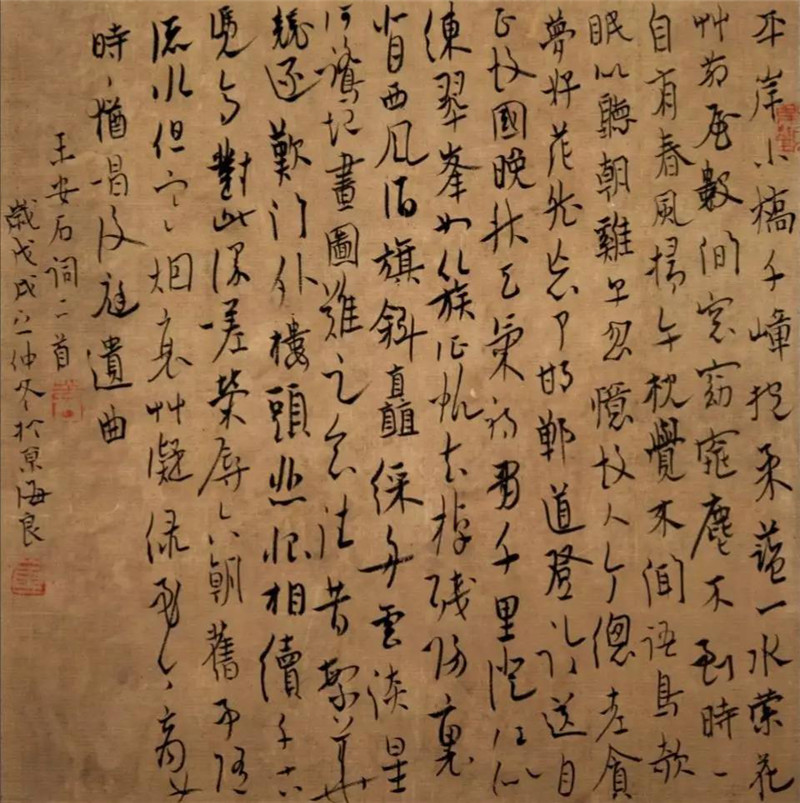 平岸小橋千嶂抱柔藍一水縈花
艸茅屋數間窓窈窕塵不到時々
自有春風掃午枕覺来聞語鳥欹
眠似聽朝雞早忽憶故人今總老貪
夢好茫然忘了邯鄲道登临送目
正故國晚秋天氣初肅千里澄江似
練翠峯如簇征帆去棹残陽裏
背西风酒旗斜矗綵舟雲淡星
河鷺起畫圖難足念往昔繁華
競逐歎门外樓頭悲恨相續千古
凭高對此漫嗟榮辱六朝舊事随
流水但寒烟衰艸凝绿至今商女
時々猶唱後庭遺曲
王安石词二首
歲戊戌之仲冬於京海良